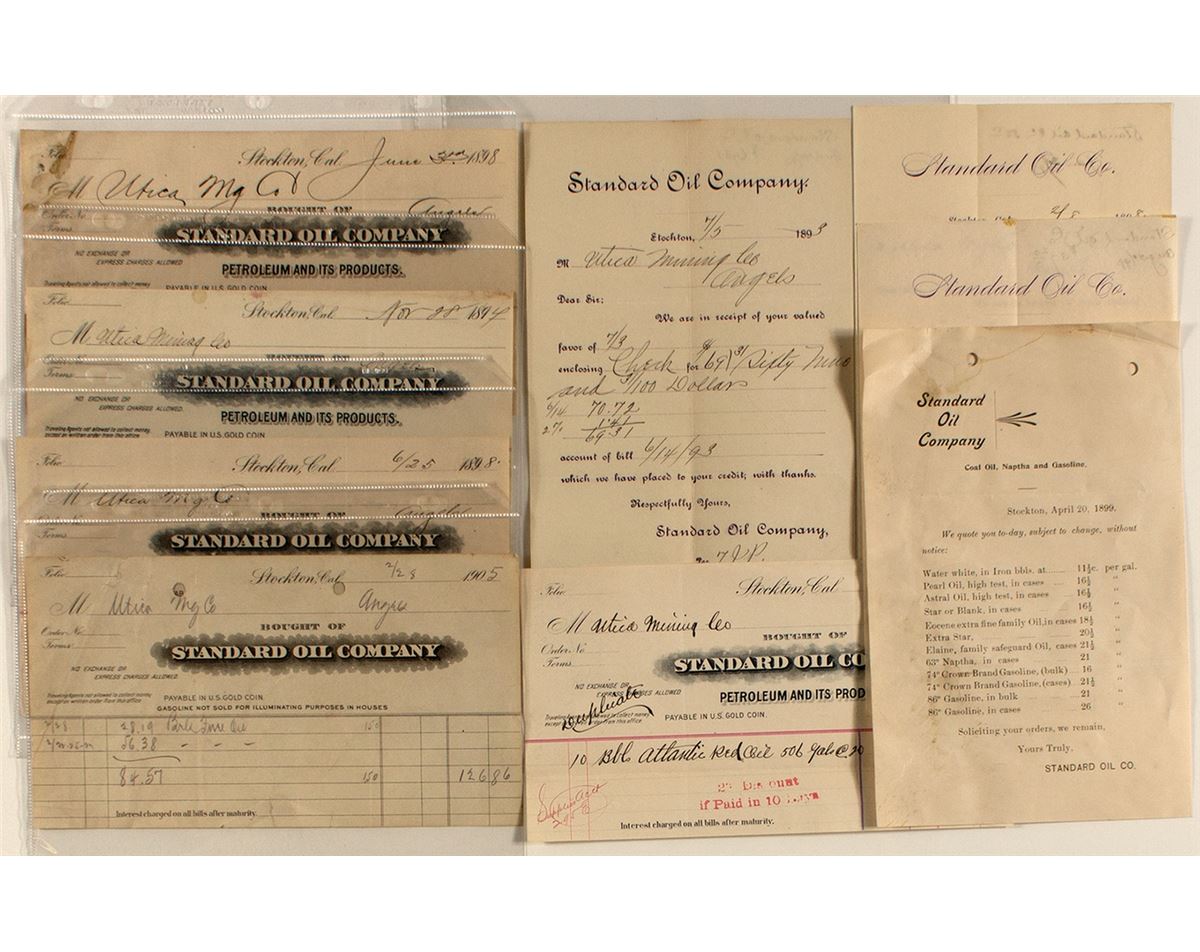 Folio
Stockton, Cal. June 1898
M Utica Mg Co
BOUGHT OF
Order No
Terms
STANDARD OIL COMPANY
NO EXCHANGE OR
EXPRESS CHARGES ALLOWED
PETROLEUM AND ITS PRODUCTS.
Traveling Agents not allowed to collect money
PAYABLE IN U.S. GOLD COIN.
Folio
Stockton, Cal Nov 28 1894
M Utica Mining Co
Terms
STANDARD OIL COMPANY
NO EXCHANGE OR
EXPRESS CHARGES ALLOWED.
PETROLEUM AND ITS PRODUCTS.
Traveling Agents not allowed to collect money
except on written order from this office
PAYABLE IN U.S. GOLD COIN.
Folio
Stockton, Cal 6/25 1898
M Utica Mg Co
BOUGHT OF Angels
Terms
STANDARD OIL COMPANY
Folio
Stockton, Cal 2/28 1905
M Utica Mg Co Angels
BOUGHT OF
Order No
Terms
STANDARD OIL COMPANY
NO EXCHANGE OR
EXPRESS CHARGES ALLOWED.
Traveling Agents not allowed to collect money
except on written order from this office
PAYABLE IN U.S. GOLD COIN.
GASOLINE NOT SOLD FOR ILLUMINATING PURPOSES IN HOUSES
28.19 150
56.38
84.57 150 126 86
Interest charged on all bills after maturity.
Standard Oil Company.
Stockton, 7/5 1893
M Utica Mining Co
Angels
Dear Sir;
We are in receipt of your valued
favor of 7/3
enclosing Check for 69 31 Sixty Nine
and 31/100 Dollars
6/14 70.72
2% 1.41
69.31
account of bill 6/14/93
which we have placed to your credit; with thanks.
Respectfully Yours,
Standard Oil Company,
Folio
Stockton, Cal
M Utica Mining Co
BOUGHT OF
Order No
Terms
STANDARD OIL CO
NO EXCHANGE OR
EXPRESS CHARGES ALLOWED.
PETROLEUM AND ITS PROD
Duplicate
Traveling Agents not allowed to collect money
except on written order from this office.
PAYABLE IN U.S. GOLD COIN.
10 Bbls Atlantic Red Oil 506 gals @ 20
2% Discount
if Paid in 10 Days
Interest charged on all bills after maturity.
Standard Oil Co.
2/8 1898
Standard Oil Co.
Standard
Oil
Company
Coal Oil, Naptha and Gasoline.
Stockton, April 20, 1899.
We quote you to-day, subject to change, without
notice:
Water white, in Iron bbls. at 11½c. per gal.
Pearl Oil, high test, in cases 16½ "
Astral Oil, high test, in cases 16½ "
Star or Blank, in cases 16½ "
Eocene extra fine family Oil, in cases 18½ "
Extra Star, 20½ "
Elaine, family safeguard Oil, cases 21½ "
63° Naptha, in cases 21 "
74° Crown Brand Gasoline, (bulk) 16 "
74° Crown Brand Gasoline, (cases) 21½ "
86° Gasoline, in bulk 21 "
86° Gasoline, in cases 26 "
Soliciting your orders, we remain,
Yours Truly.
STANDARD OIL CO.